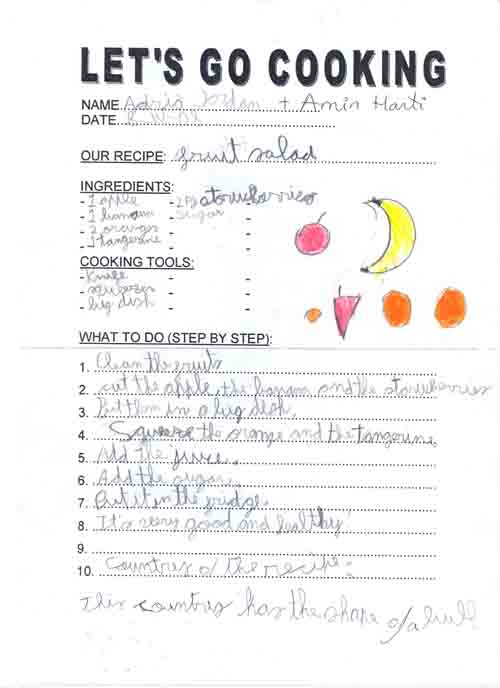 LET'S GO COOKING
NAME Adria Jordan + Amin Harti
DATE
OUR RECIPE: fruit salad
INGREDIENTS:
- 1 apple - 250 starwberries
- 1 banana - sugar -
- 2 oranges - -
- 1 tangerine - -
COOKING TOOLS:
- Knife - -
- squeezer - -
- big dish - -
WHAT TO DO (STEP BY STEP):
1. Clean the fruits
2. cut the apple, the banana and the starwberries
3. Put them in a big dish.
4. Squeeze the orange and the tangerine.
5. Add the juice.
6. Add the sugar.
7. Put it in the fridge.
8. It's very good and healthy!
9.
10. Countrys of the recipe:
This countrys has the shape of a bull